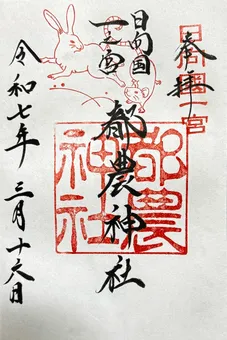 奉拝
日向國一宮
日向国
一之宮
都農神社
都農
神社
令和七年 三月十六日